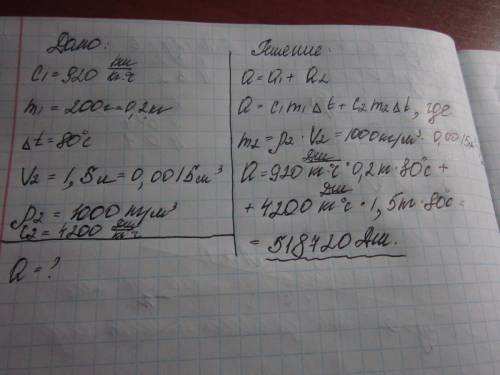 Дано:
C₁=920 Дж/кг·°C
m₁=200г=0,2кг
Δt=80°C
V₂=1,5л=0,0015м³
ρ₂=1000кг/м³
C₂=4200 Дж/кг·°C
Q=?
Решение:
Q=Q₁+Q₂
Q=C₁m₁Δt+C₂m₂Δt, где
m₂=ρ₂·V₂=1000кг/м³·0,0015м
Q=920 Дж/кг·°C·0,2кг·80°C+
+4200 Дж/кг·°C·1,5кг·80°C=
=518720Дж.